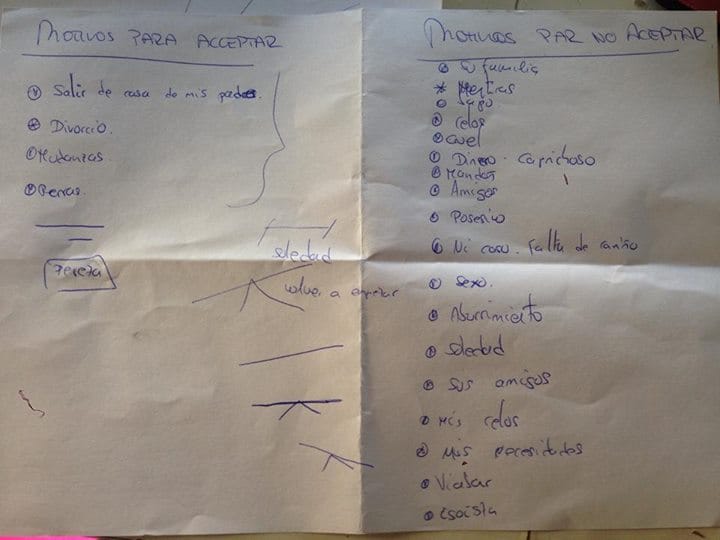 MOTIVOS PARA ACCEPTAR
Salir de casa de mis padres.
Divorcio.
Mudanzas
Perras.
Pereza
soledad
volver a empezar
MOTIVOS PAR NO ACEPTAR
familia
Mentiras
Celos
Cruel
Dinero. Caprichoso
Mandón
Amigos
Posesivo
Ni caso. Falta de cariño
Sexo.
Aburrimiento
Soledad
Sus amigos
Mis celos
Mis necesidades
Viajar
Egoista